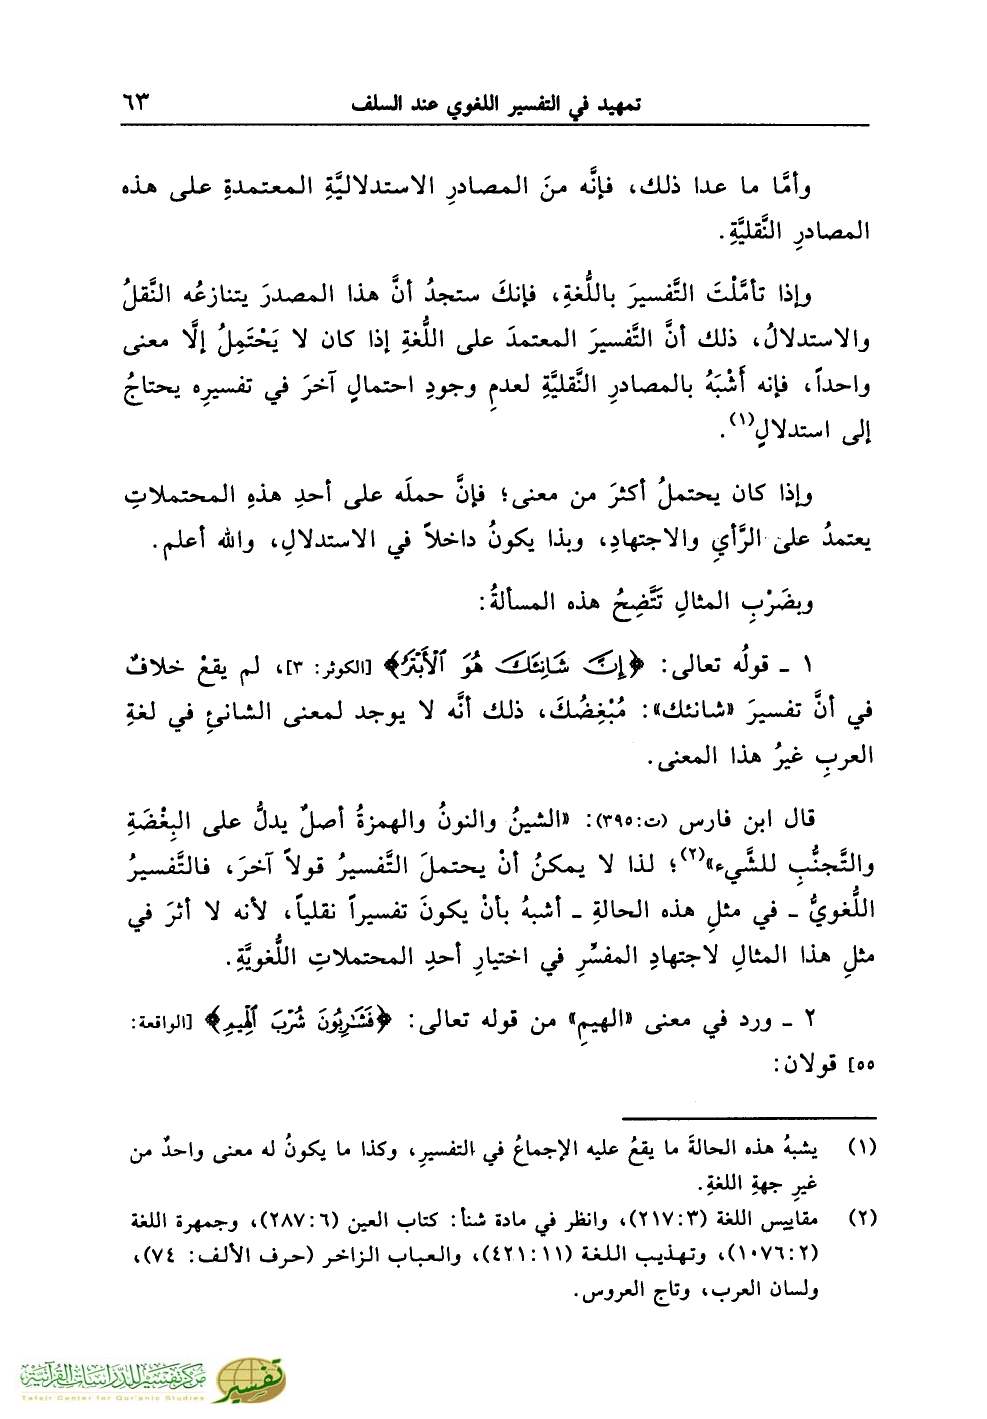 تمهيد في التفسير اللغوي عند السلف ٦٣
وأمَّا ما عدا ذلك، فإنَّه منَ المصادرِ الاستدلاليَّةِ المعتمدةِ على هذه
المصادرِ النَّقليَّةِ.
وإذا تأمَّلْتَ التَّفسيرَ باللُّغةِ، فإنكَ ستجدُ أنَّ هذا المصدرَ يتنازعُه النَّقلُ
والاستدلالُ، ذلك أنَّ التَّفسيرَ المعتمدَ على اللُّغةِ إذا كان لا يَحْتَمِلُ إلَّا معنى
واحداً، فإنه أَشْبَهُ بالمصادرِ النَّقليَّةِ لعدمِ وجودِ احتمالٍ آخرَ في تفسيرِه يحتاجُ
إلى استدلالٍ(١).
وإذا كان يحتملُ أكثرَ من معنى؛ فإنَّ حملَه على أحدِ هذهِ المحتملاتِ
يعتمدُ على الرَّأيِ والاجتهادِ، وبذا يكونُ داخلاً في الاستدلالِ، والله أعلم.
وبضَرْبِ المثالِ تَتَّضِحُ هذه المسألةُ:
١ ـ قولُه تعالى: ﴿إِنَّ شَانِئَكَ هُوَ ٱلْأَبْتَرُ﴾ [الكوثر: ٣]، لم يقعْ خلافٌ
في أنَّ تفسيرَ «شانئك»: مُبْغِضُكَ، ذلك أنَّه لا يوجد لمعنى الشانئِ في لغةِ
العربِ غيرُ هذا المعنى.
قال ابن فارس (ت:٣٩٥): «الشينُ والنونُ والهمزةُ أصلٌ يدلُّ على البِغْضَةِ
والتَّجنُّبِ للشَّيء»(٢)؛ لذا لا يمكنُ أنْ يحتملَ التَّفسيرُ قولاً آخرَ، فالتَّفسيرُ
اللُّغويُّ ـ في مثلِ هذه الحالةِ ـ أشبهُ بأنْ يكونَ تفسيراً نقلياً، لأنه لا أثرَ في
مثلِ هذا المثالِ لاجتهادِ المفسِّرِ في اختيارِ أحدِ المحتملاتِ اللُّغويَّةِ.
٢ ـ ورد في معنى «الهيمِ» من قوله تعالى: ﴿فَشَٰرِبُونَ شُرْبَ ٱلْهِيمِ﴾ [الواقعة:
٥٥] قولان:
(١) يشبهُ هذه الحالةَ ما يقعُ عليه الإجماعُ في التفسيرِ، وكذا ما يكونُ له معنى واحدٌ من
غيرِ جهةِ اللغةِ.
(٢) مقاييس اللغة (٣:٢١٧)، وانظر في مادة شنأ: كتاب العين (٦:٢٨٧)، وجمهرة اللغة
(٢:١٠٧٦)، وتهذيب اللغة (١١:٤٢١)، والعباب الزاخر (حرف الألف: ٧٤)،
ولسان العرب، وتاج العروس.
مركز تفسير للدراسات القرآنية
Tafsir Center for Qur'anic Studies
تفسير